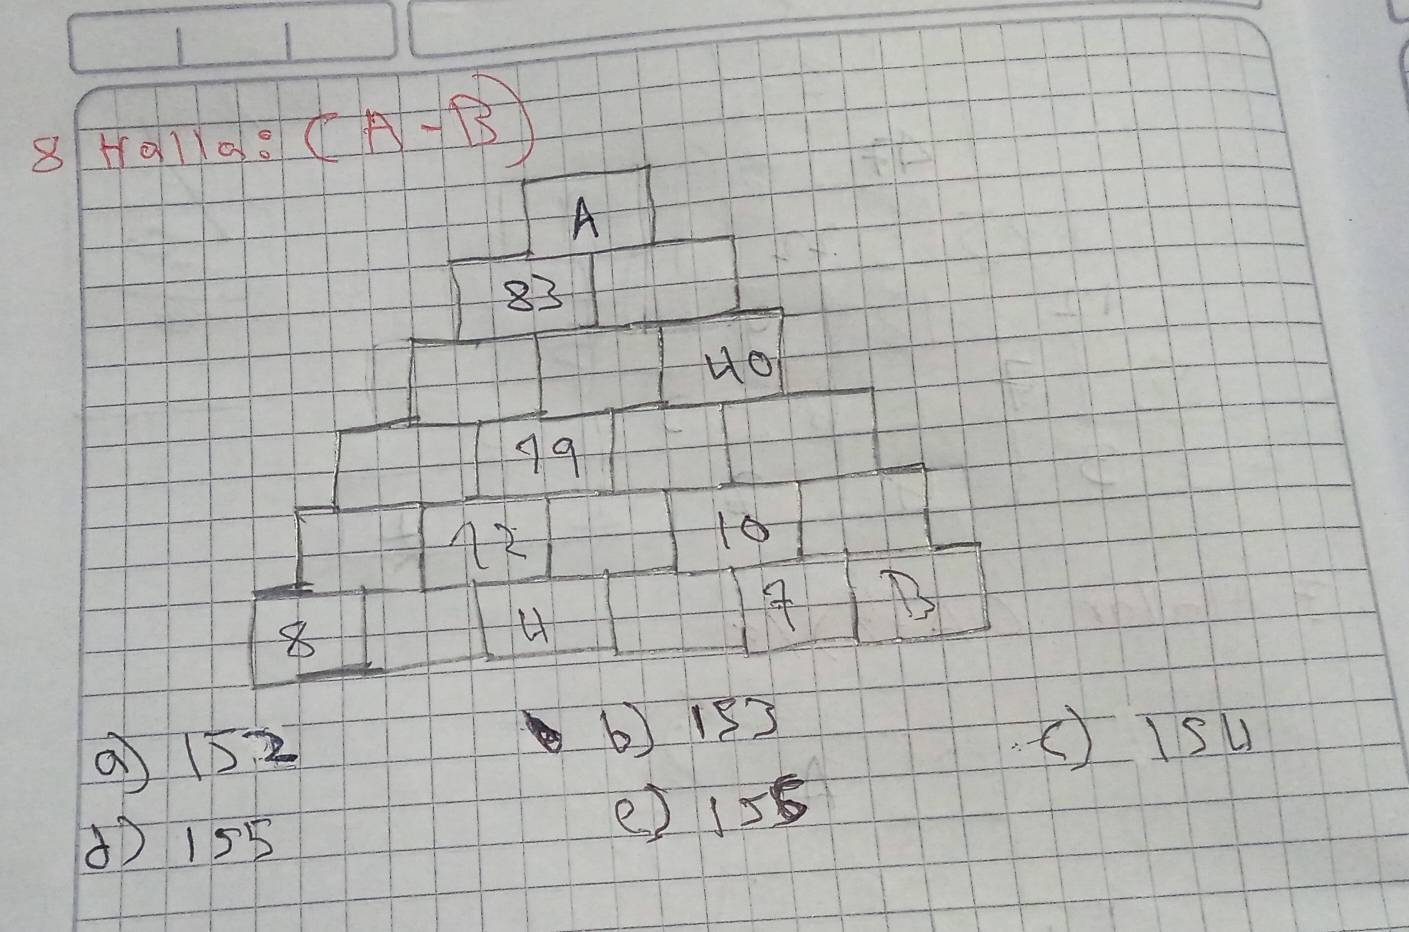 8 Halla: (A-B)
A
83
40
19
12 10
8 4 7 B
a) 152 b) 153 c) 154
d) 155 e) 156